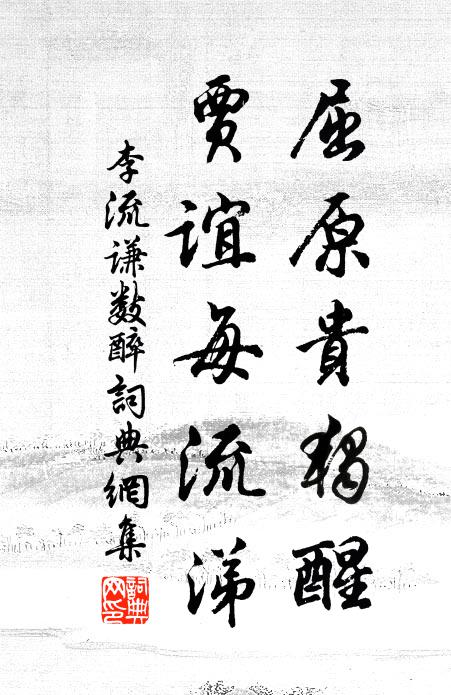 屈原貴獨醒
賈誼每流涕
李流謙數醉詞典網集
詞典網印